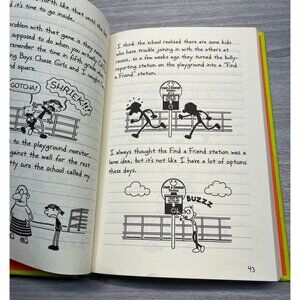 it's time to go inside.
problem with that game is they ma
supposed to do when you are Ca
remember the time in fifth grad
ing Boys Chase Girls and I sough
d square.
GOTCHA!
SHRIEK!!
to the playground monitor,
against the wall for the rest
tty sure the school called my
I think the school realized there are some kids
who have trouble joining in with the others at
recess, so a few weeks ago they turned the bully-
reporting station on the playground into a "Find
a Friend" station.
I always thought the Find a Friend station was a
lame idea, but it's not like I have a lot of options
these days.
BUZZZ
93